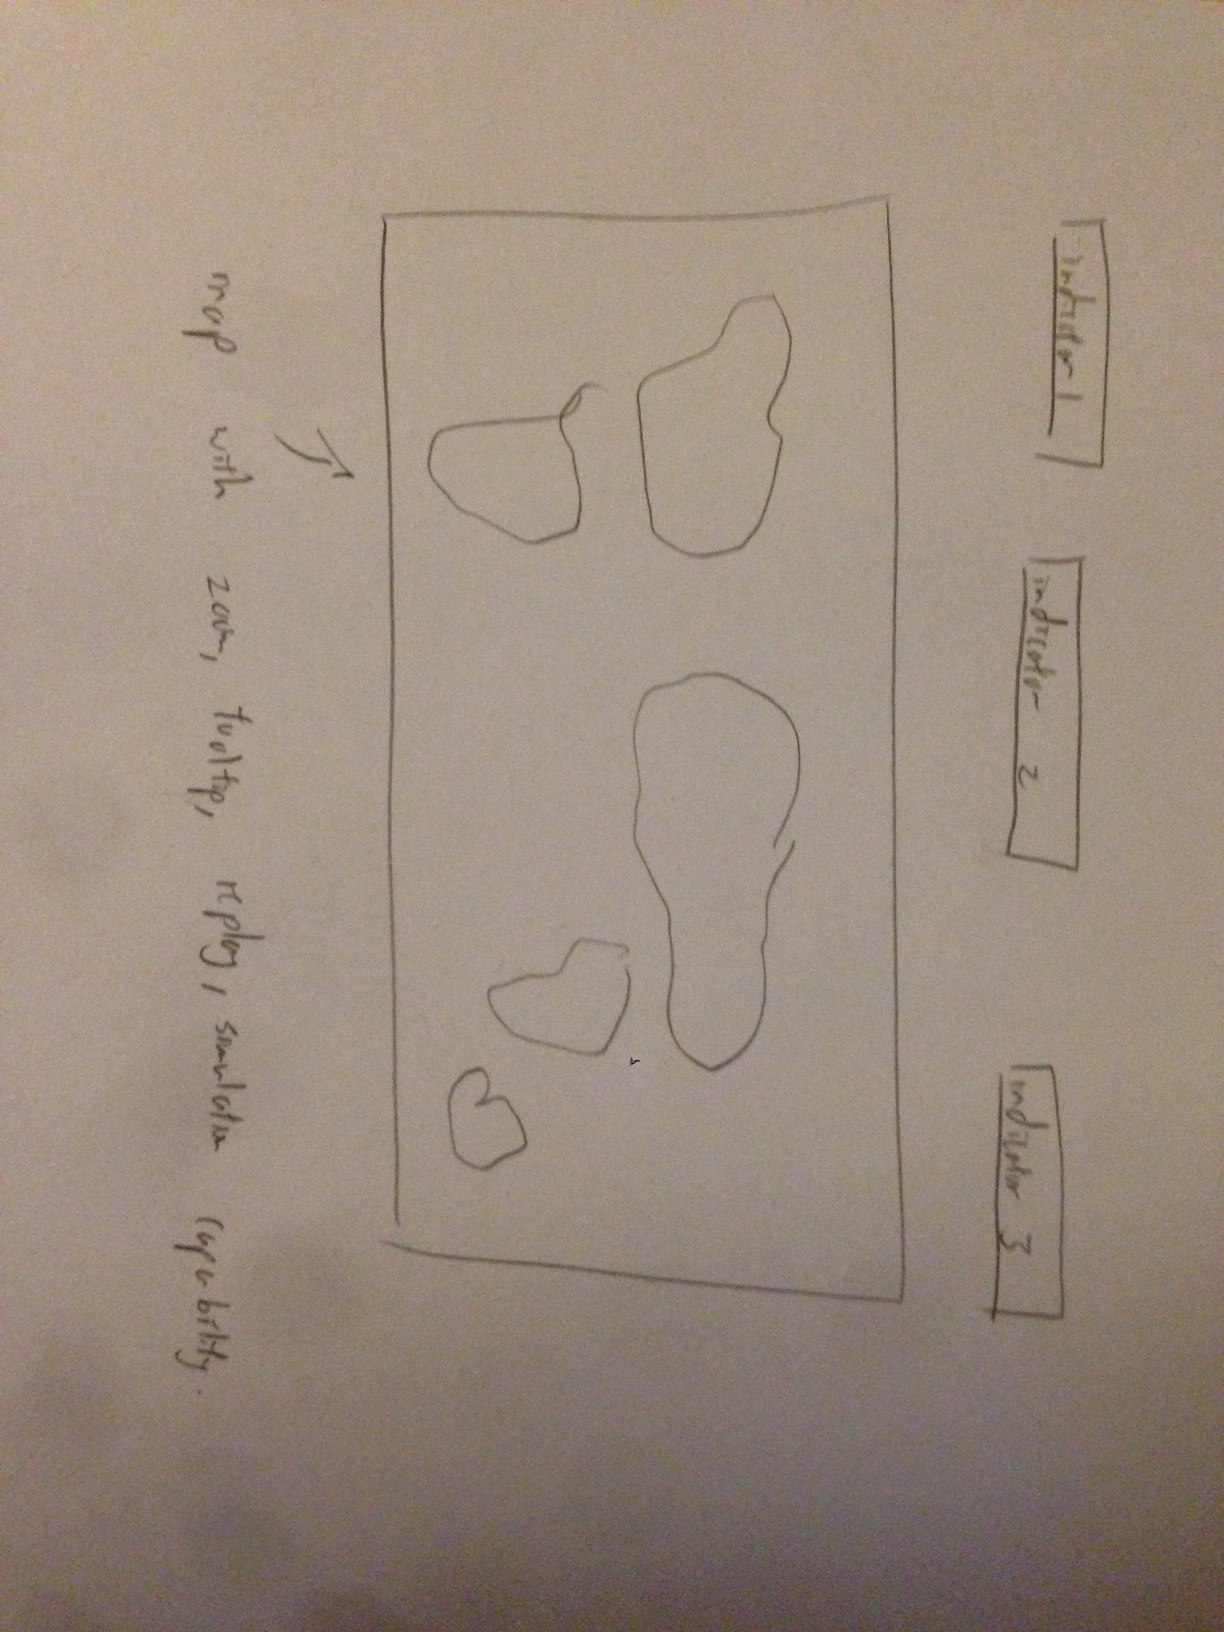 indicator 1
indicator 2
indicator 3
map with zoom, tooltip, replay, simulation capability.